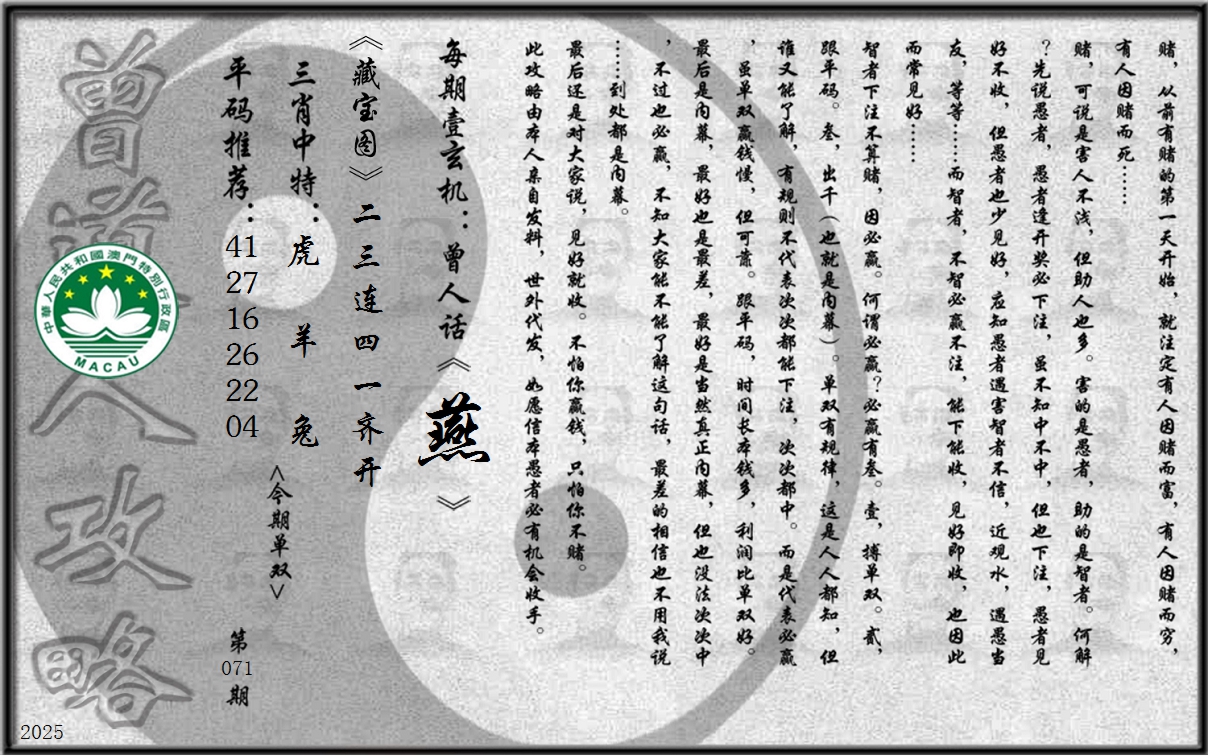 赌，从前有赌的第一天开始，就注定有人因赌而富，有人因赌而穷，
有人因赌而死……
赌，可说是害人不浅，但助人也多。害的是愚者，助的是智者。何解
？先说愚者，愚者逢开奖必下注，虽不知中不中，但也下注，愚者见
好不收，但愚者也少见好，应知愚者遇害智者不信，近观水，遇愚当
友，等等……而智者，不智必赢不注，能下能收，见好即收，也因此
而常见好……
智者下注不算赌，因必赢。何谓必赢？必赢有叁。壹，搏单双。贰，
跟平码。叁，出千（也就是内幕）。单双有规律，这是人人都知，但
谁又能了解，有规则不代表次次都能下注，次次都中。而是代表必赢
，虽单双赢钱慢，但可靠。跟平码，时间长本钱多，利润比单双好。
最后是内幕，最好也是最差，最好是当然真正内幕，但也没法次次中
，不过也必赢，不知大家能不能了解这句话，最差的相信也不用我说
……到处都是内幕。
最后还是对大家说，见好就收。不怕你赢钱，只怕你不赌。
此攻略由本人亲自发料，世外代发，如愿信本愚者必有机会收手。
每期壹玄机：曾人话《燕》
《藏宝图》二三连四一齐开
三肖中特：虎 羊 兔
<今期单双>
平码推荐：
41
27
16
26
22
04
第
071
期
曾道人攻略
中華人民共和國澳門特別行政區
MACAU
2025